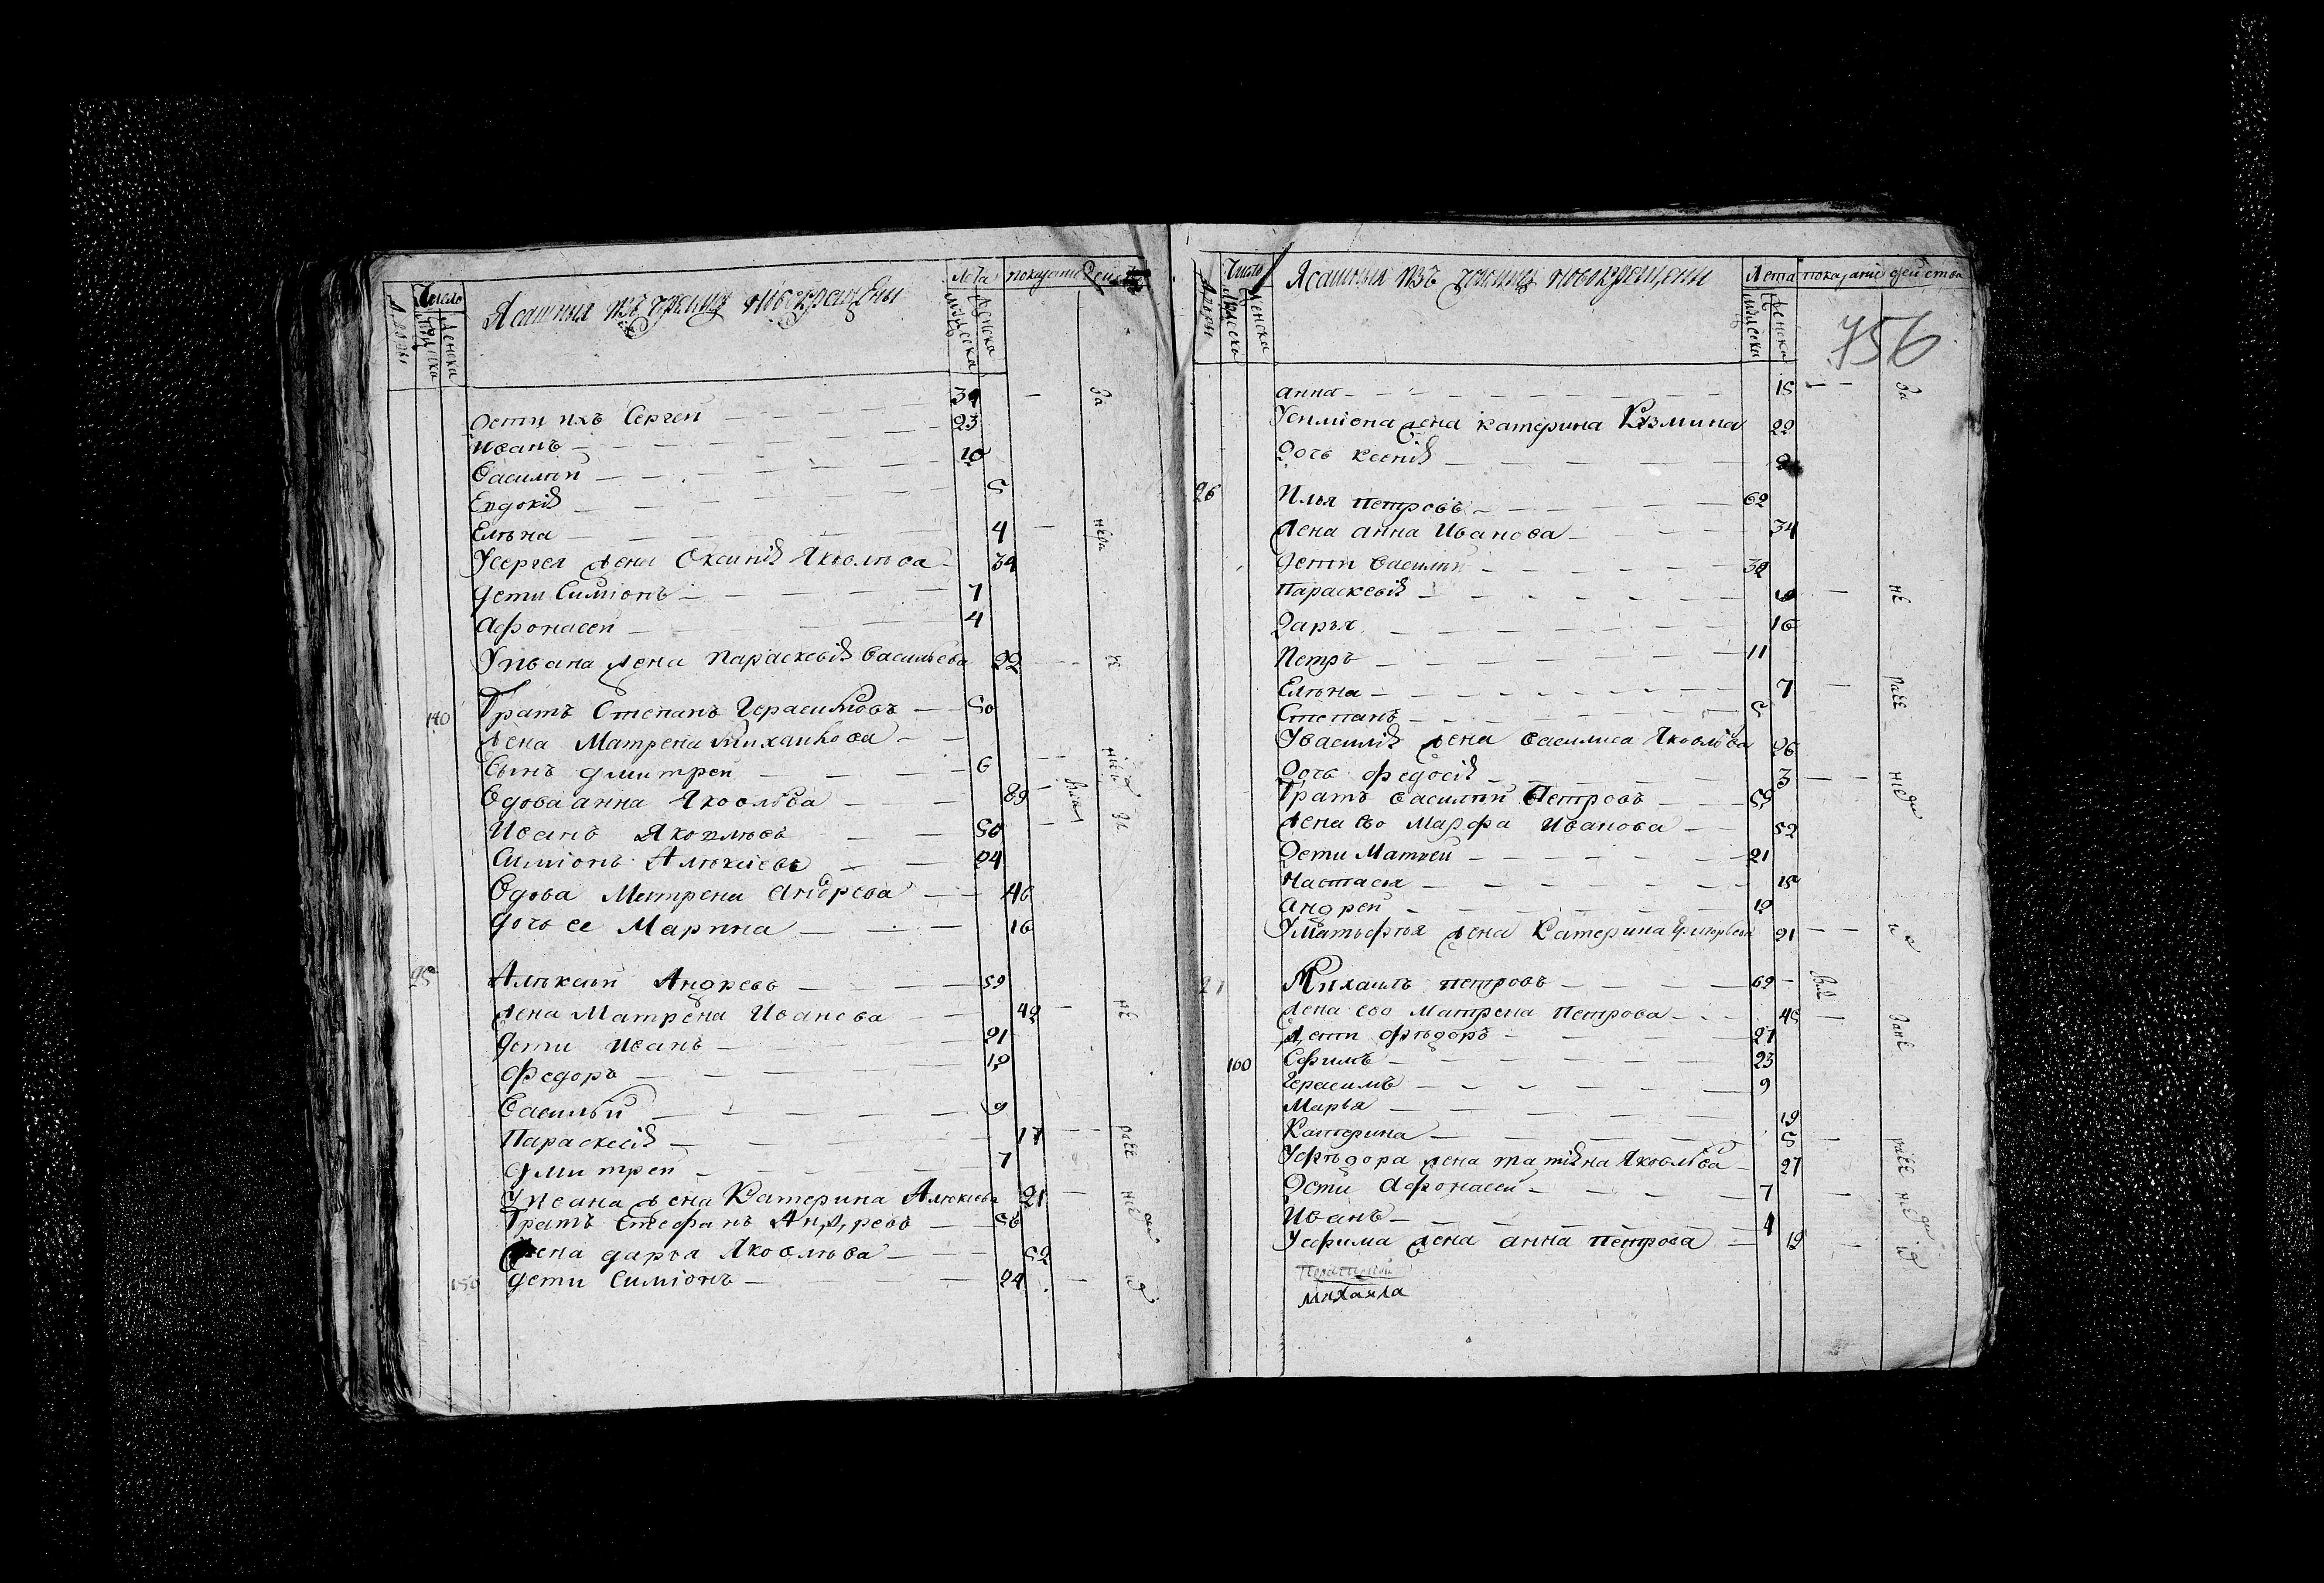 Дворы
Число
Мужеска
Женска
Ясашныя изъ чювашъ новокрещены
Лета
Мужеска
Женска
показание действа
Дети ихъ Сергей 39
Иванъ 23
Василий 10
Евдокия 5
Елѣна 4
У Сергея жена Оксиния Яковлѣва 34
Дети Симионъ 7
Афонасей 4
У Ивана жена Параскевия Васильева 22
140 Братъ Степанъ Герасимовъ 50
Жена Матрена Михайлова
Сынъ Дмитрей 6
Вдова анна Яковлѣва 89
Иванъ Яковлѣвъ 50
Симионъ Алѣксиевъ 24
Вдова Матрена Андрѣева 46
Дочь ее Марина 16
25 Алѣксѣй Андреевъ 59
Жена Матрена Иванова 42
Дети Иванъ 21
Федоръ 19
Василѣй 9
Параскевия 17
Дмитрей 7
У Ивана жена Катерина Алѣксиева 21
Братъ Стефанъ Андреевъ 56
Жена дарья Яковлѣва 52
150 Дети Симионъ 24
Дворы
Число
Мужеска
Женска
Ясашныя изъ чювашъ новокрещены
Лета
Мужеска
Женска
показание действа
756
анна 15
У Симиона жена катерина Козмина 22
Дочь Ксения 2
26 Илья петровъ 62
Жена анна Иванова 34
Дети Василий 32
Параскевия
Дарья 16
Петръ 11
Елѣна 7
Степанъ 5
У Василия жена Василиса Яковлѣва 26
Дочь Федосия 3
Братъ Василий Петровъ 59
Жена ево Марфа Иванова 52
Дети Матвей 21
Настасья 15
Андрей 12
У Матьфѣя жена Катерина Григорьева 21
27 Михаилъ петровъ 69
Жена ево Матрена Петрова 45
Дети Фѣодоръ 27
160 Ефимъ 23
Герасимъ 9
Марья 19
Катерина 5
У Фѣодора жена татияна Яковлѣва 27
Дети Афонасей 7
Иванъ 4
У Ефима жена анна Петрова 19
Михаила